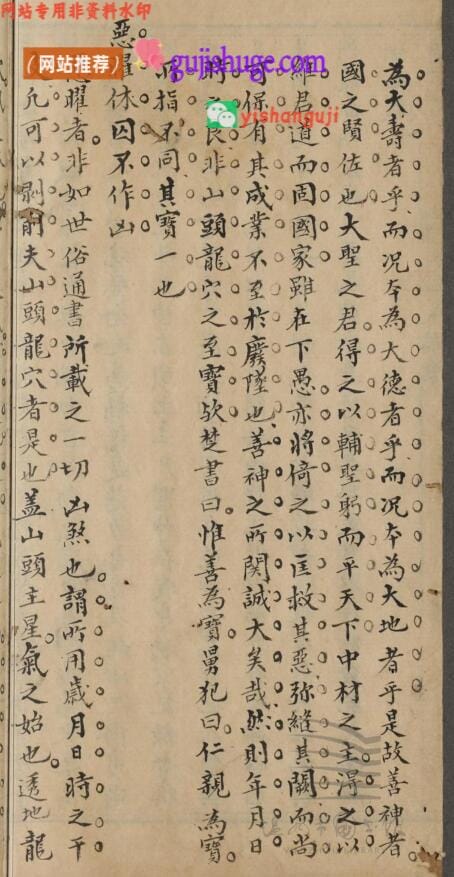 网站专用非资料水印
（网站推荐）
gujishuge.com
yishanguji
為大壽者乎而况夲為大德者乎而况夲為大地者乎是故善神者
國之賢佐也大聖之君得之以輔聖躬而平天下中材之主得之以
維君道而固國家雖在下愚亦將倚之以匡救其惡弥縫其闕而尚
可保有其成業不至於廢墜也善神之所関誠大矣哉然則年月日
時之良非山頭龍穴之至寶欤楚書曰惟善為寶舅犯曰仁親為寶
所指不同其寶一也
惡曜休囚不作凶
惡曜者非如世俗通書所載之一切凶煞也謂所用歲月日時之干
支凡可以剥削夫山頭龍穴者是也盖山頭主星氣之始也透地龍